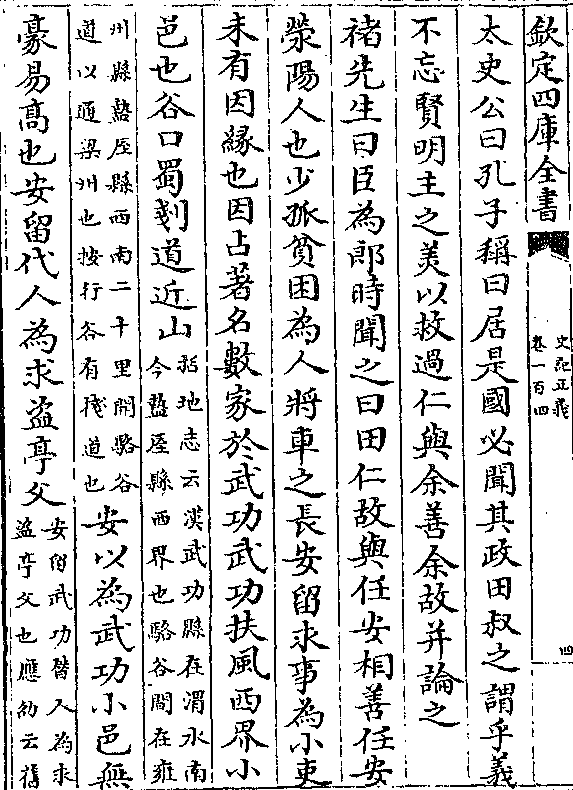 欽定四庫全書
史記正義
卷一百四
四
太史公曰孔子稱曰居是國必聞其政田叔之謂乎義
不忘賢明主之美以救過仁與余善余故并論之
褚先生曰臣為郎時聞之曰田仁故與任安相善任安
滎陽人也少孤貧困為人將車之長安留求事為小吏
未有因緣也因占著名數家於武功武功扶風西界小
邑也谷口蜀剗道近山
括地志云漢武功縣在渭水南
今盩厔縣西界也駱谷關在雍
州縣盩厔縣西南二十里開駱谷
道以通梁州也按行谷有棧道也
安以為武功小邑無
豪易高也安留代人為求盜亭父
安留武功替人為求
盜亭父也應劭云舊